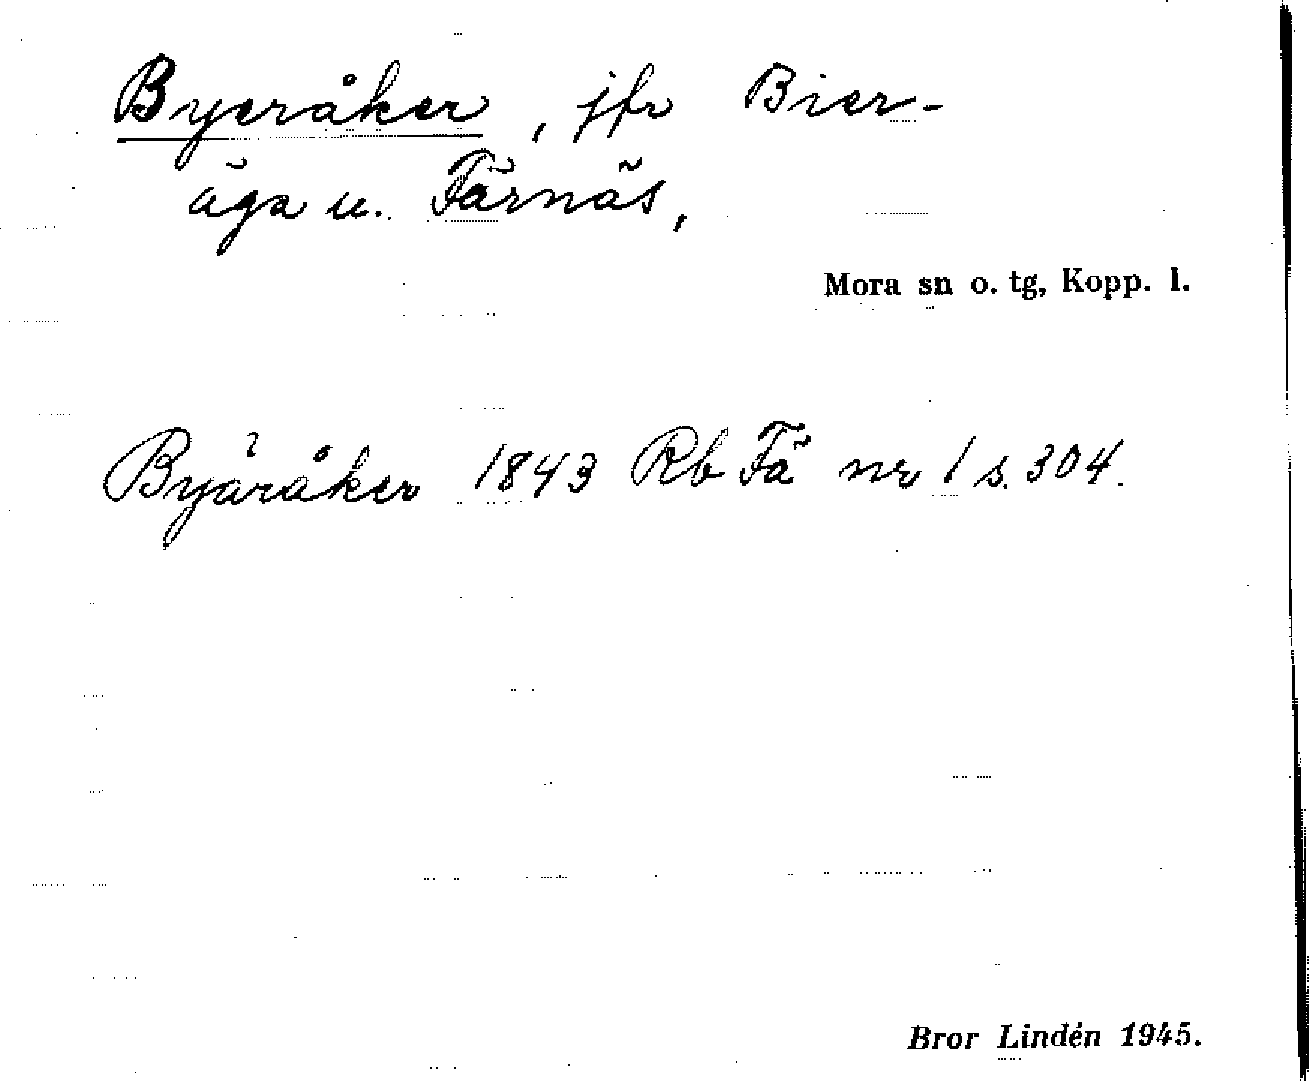 Byeråker, jfr Bier-
äga u. Färnäs,
Mora sn o. tg, Kopp. l.
Byäråker 1843 Rb Fä nr 1 s. 304.
Bror Lindén 1945.